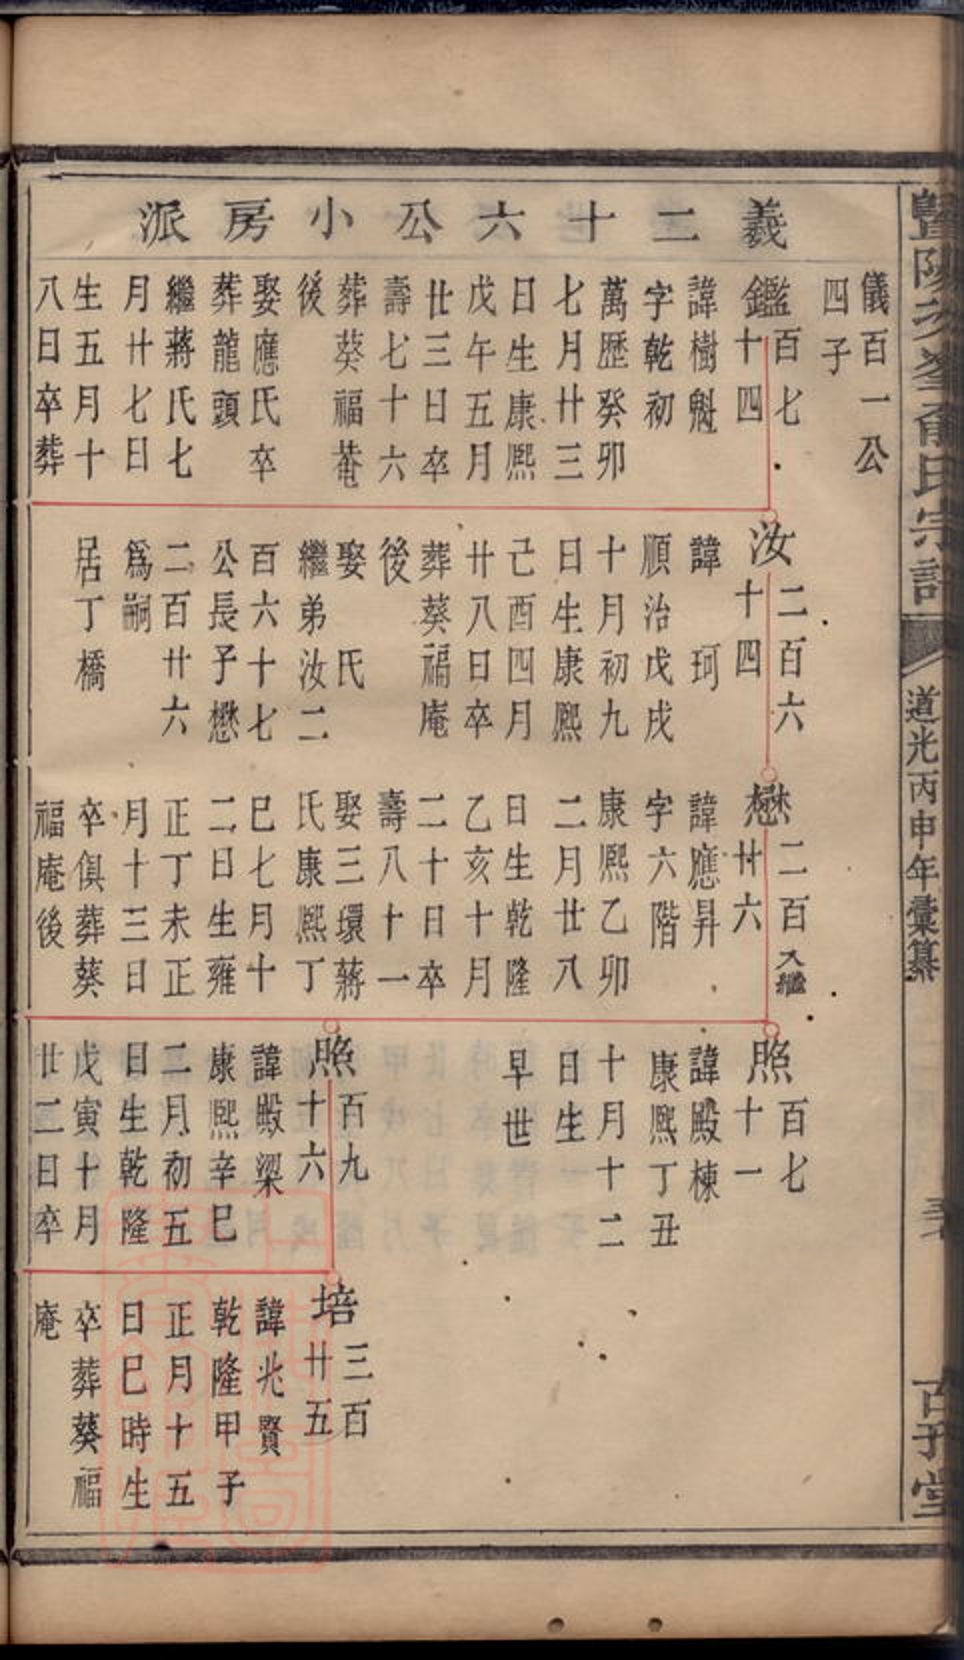 義二十六公小房派
儀百一公
四子
鑑百七
十四
諱樹魁
字乾初
萬歷癸卯
七月廿三
日生康熙
戊午五月
廿三日卒
壽七十六
葬葵福菴
後
娶應氏卒
葬龍頭
繼蔣氏七
月廿七日
生五月十
八日卒葬
汝二百六
十四
諱 珂
順治戊戌
十月初九
日生康熙
己酉四月
廿八日卒
葬葵福庵
後
娶 氏
繼弟汝二
百六十七
公長子懋
二百廿六
爲嗣
居丁橋
懋二百入繼
廿六
諱應昇
字六階
康熙乙卯
二月廿八
日生乾隆
乙亥十月
二十日卒
壽八十一
娶三環蔣
氏康熙丁
巳七月十
二日生雍
正丁未正
月十三日
卒俱葬葵
福庵後
照百七
十一
諱殿棟
康熙丁丑
十月十二
日生
早世
照百九
十六
諱殿梁
康熙辛巳
二月初五
日生乾隆
戊寅十月
廿二日卒
培三百
廿五
諱兆賢
乾隆甲子
正月十五
日巳時生
卒葬葵福
庵
道光丙申年彙纂